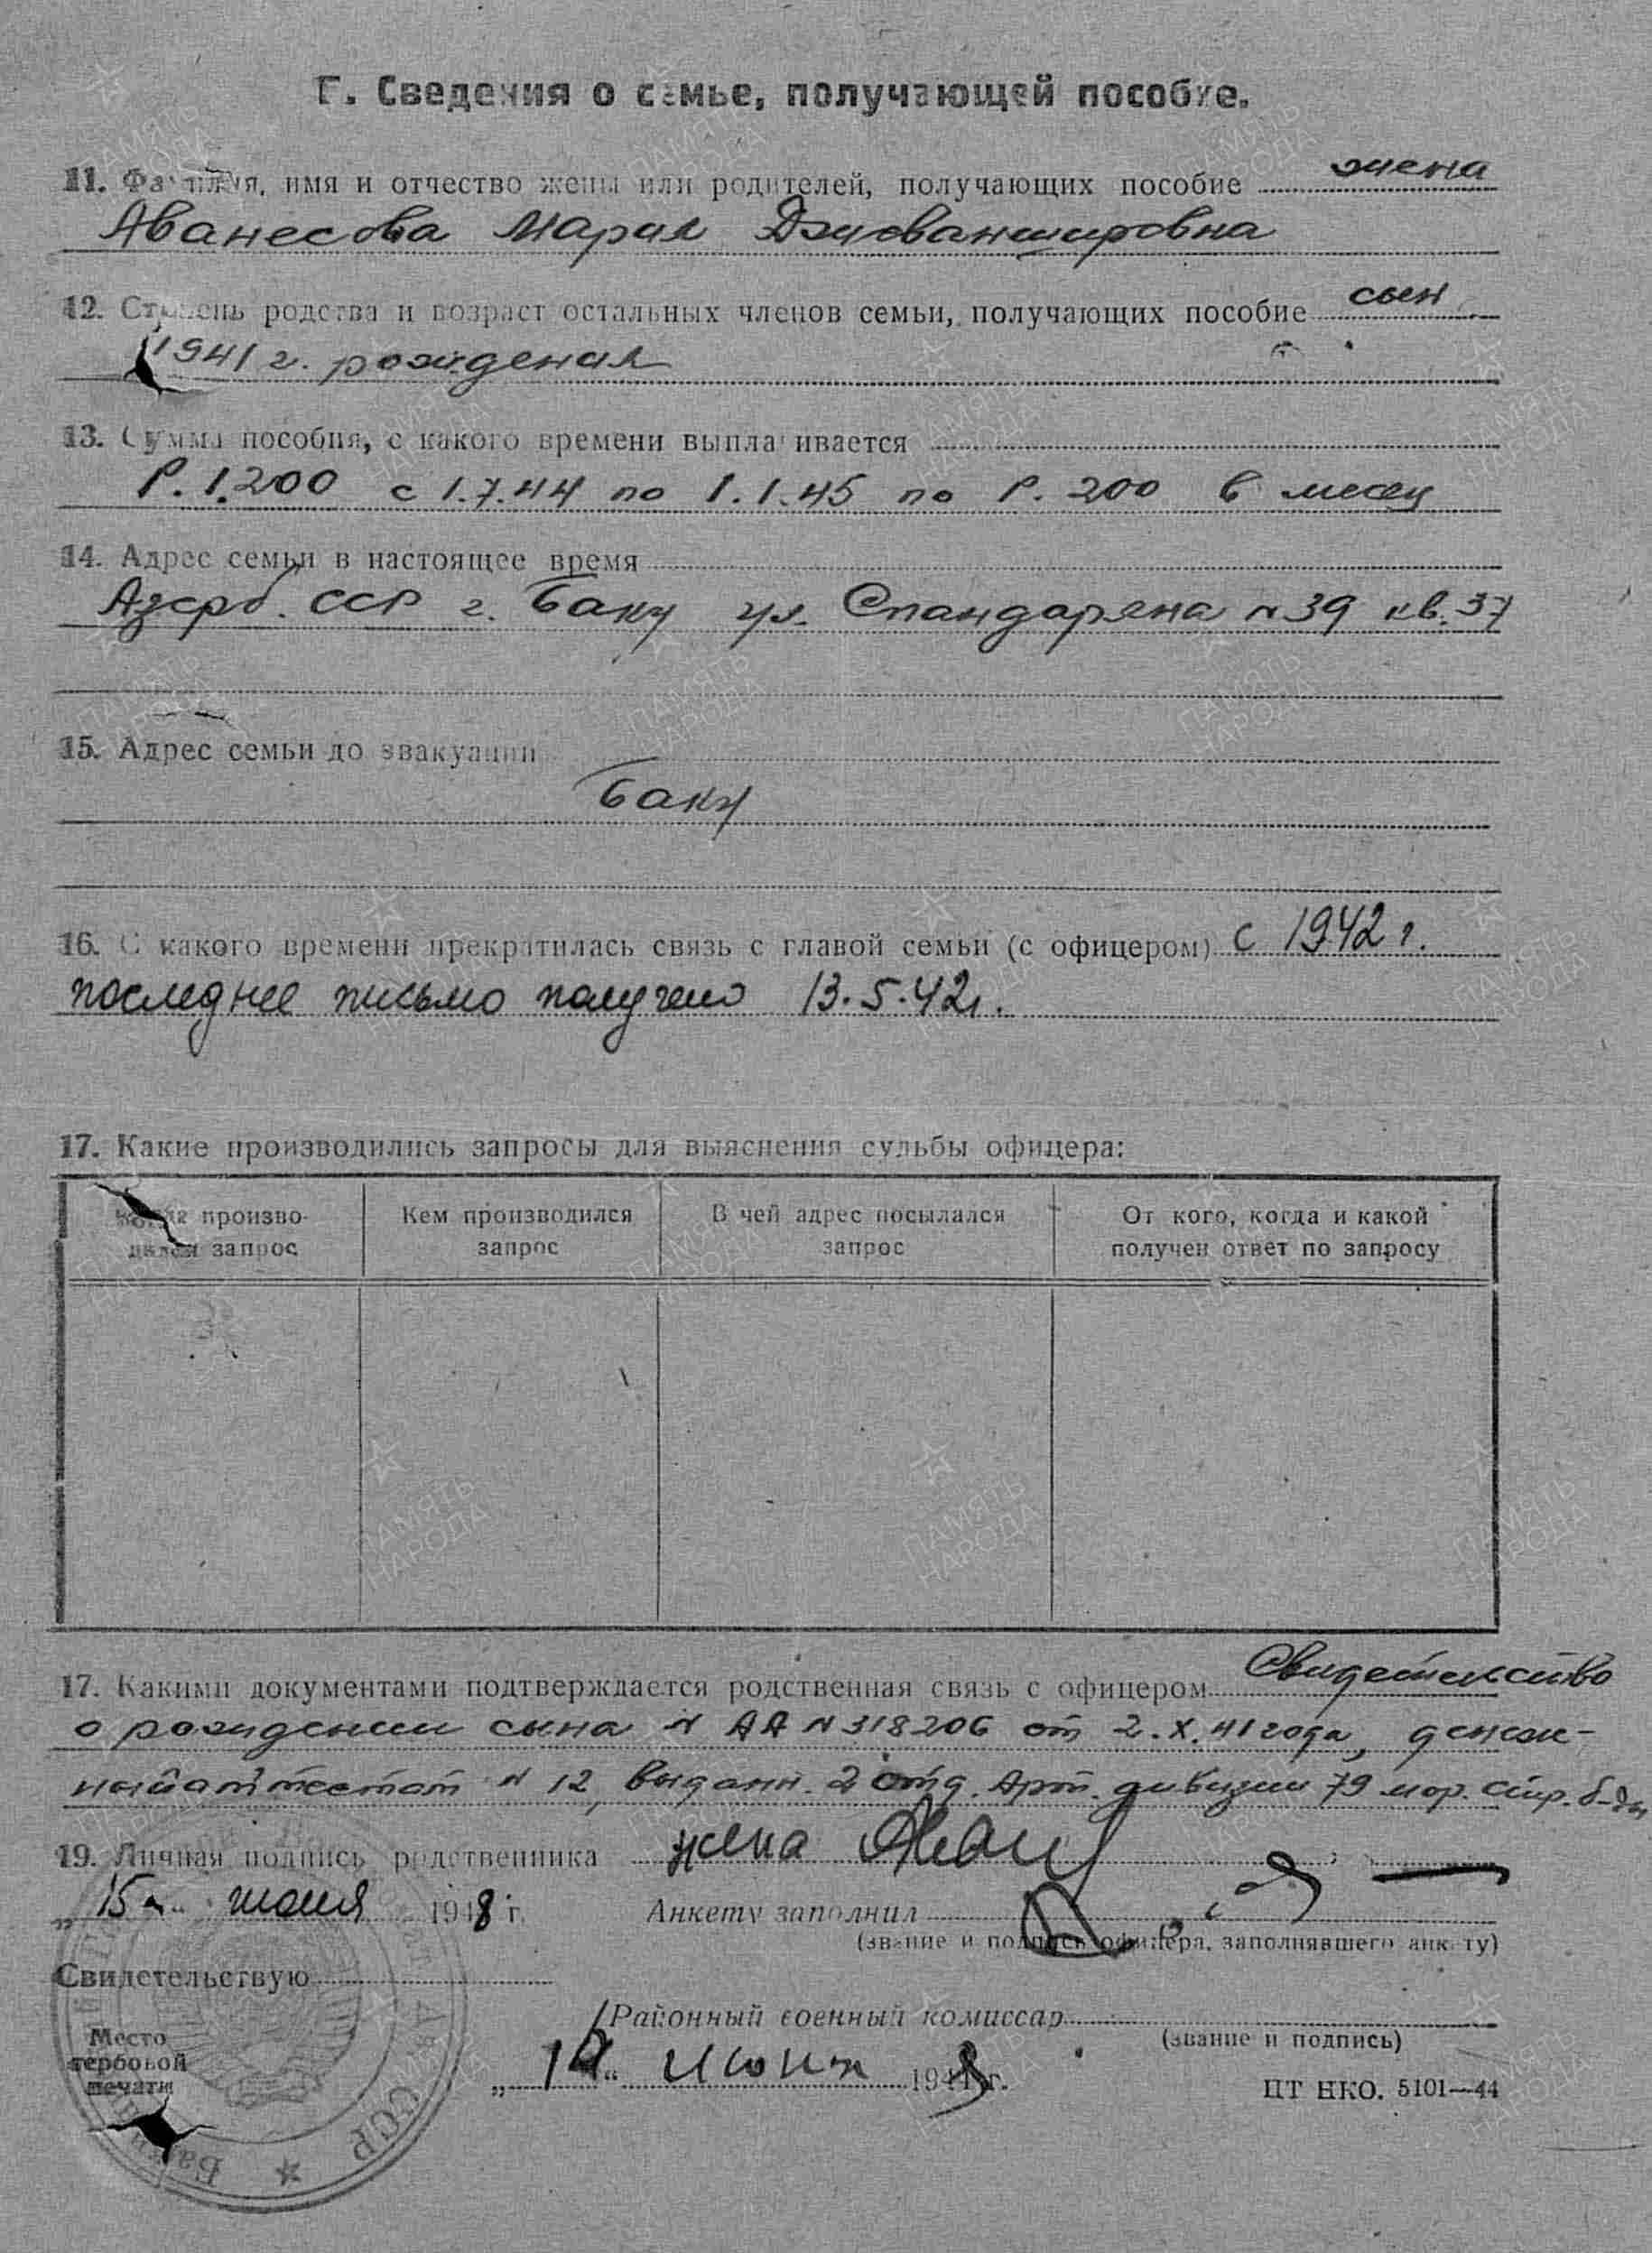 Г. Сведения о семье, получающей пособие.
11. Фамилия, имя и отчество жены или родителей, получающих пособие жена
Аванесова Мария Джеваншировна
12. Степень родства и возраст остальных членов семьи, получающих пособие сын
1941 г. рождения
13. Сумма пособия, с какого времени выплачивается
Р. 1.200 с 1.7.44 по 1.1.45 по Р. 200 в месяц
14. Адрес семьи в настоящее время
Азерб. ССР г. Баку ул. Спандаряна N 39 кв. 37
15. Адрес семьи до эвакуации
Баку
16. С какого времени прекратилась связь с главой семьи (с офицером) с 1942 г.
последнее письмо получено 13.5.42 г.
17. Какие производились запросы для выяснения судьбы офицера:
Когда производился запрос
Кем производился запрос
В чей адрес посылался запрос
От кого, когда и какой получен ответ по запросу
17. Какими документами подтверждается родственная связь с офицером Свидетельство
о рождении сына N АА N 318206 от 2.X.41 года, денеж-
ный аттестат N 12, выданн. 2 отд. Арт. дивизии 79 мор. стр. б-ды
19. Личная подпись родственника жена
„15“ июня 1948 г. Анкету заполнил
(звание и подпись офицера, заполнявшего анкету)
Свидетельствую
Районный военный комиссар
(звание и подпись)
Место гербовой печати
июня 1948 г.
ЦТ НКО. 5101—44
ПАМЯТЬ НАРОДА